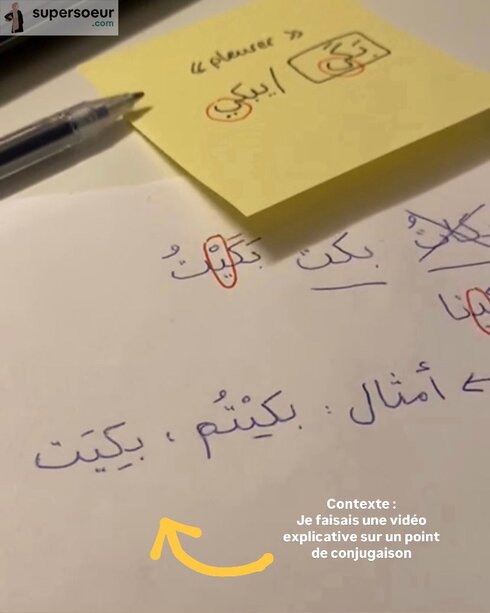 supersoeur
.com
« pleurer »
بَكَى / يبكي
بَكَيْتُ بكت
← أمثال : بكيْتُم ، بكِيَت
Contexte :
Je faisais une vidéo
explicative sur un point
de conjugaison